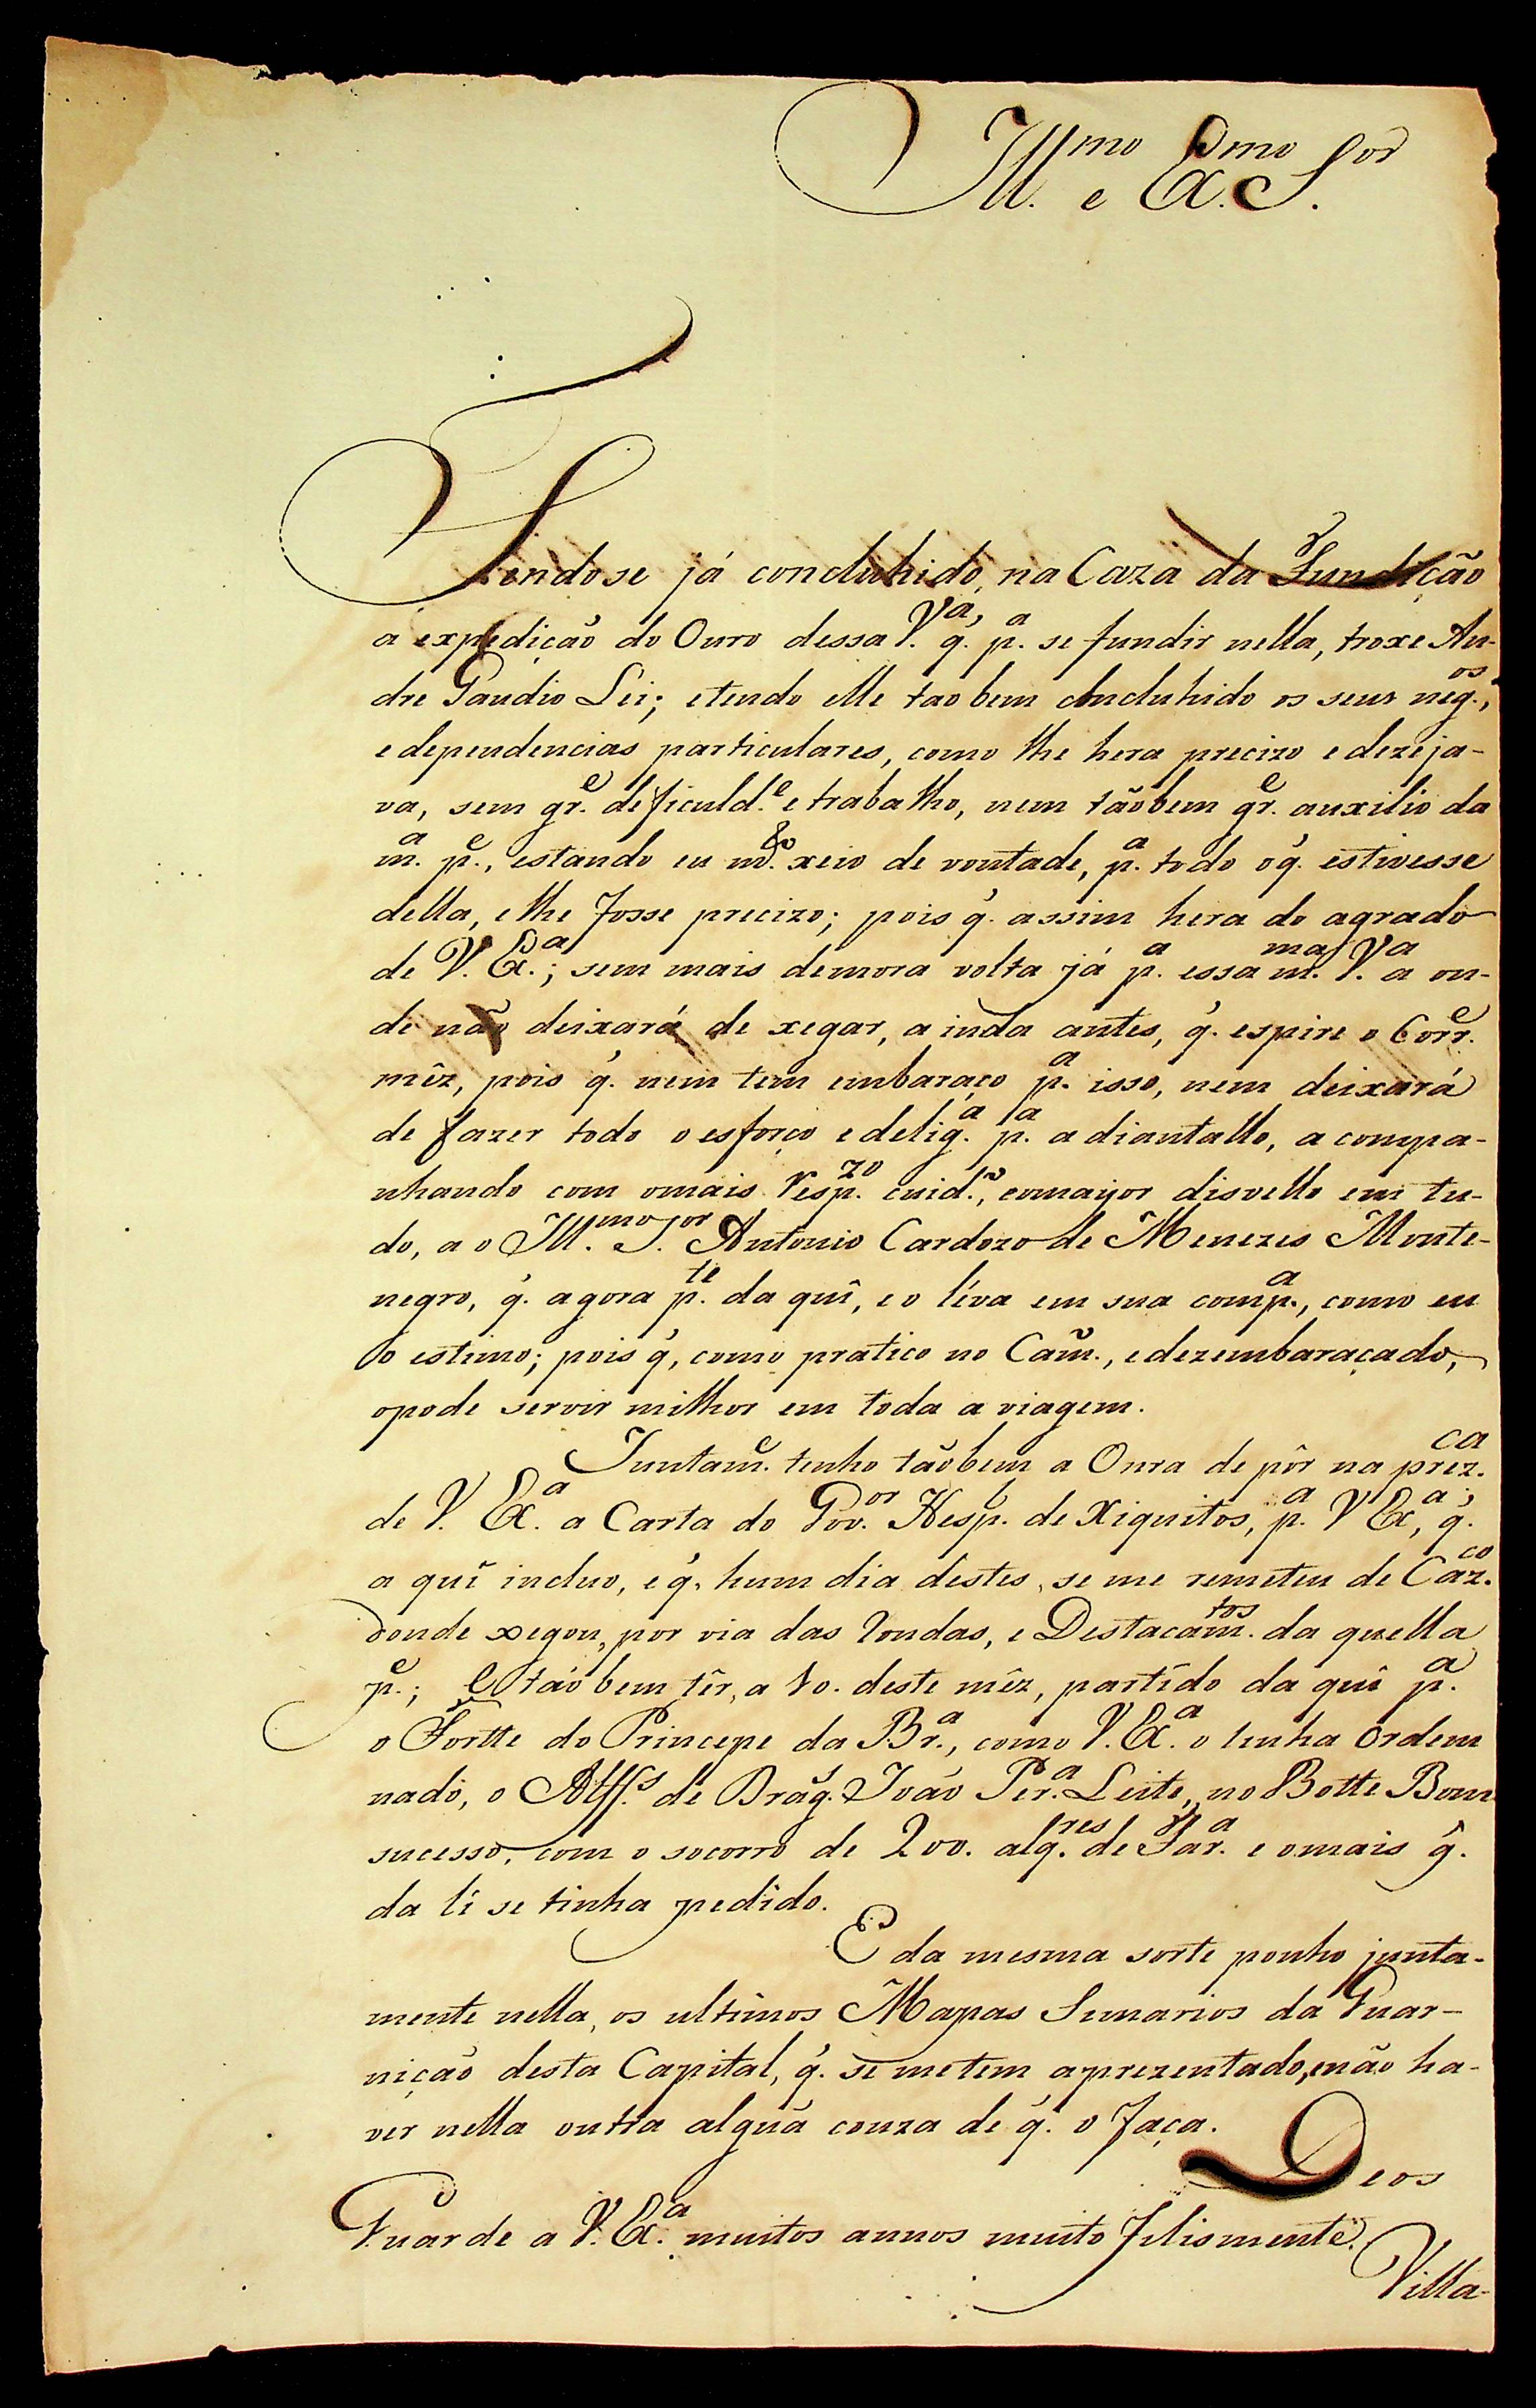 Ill.mo e Ex.mo S.or
Tendose já concluhido, na Caza da Fundição
a expedição do Ouro dessa V.a, q. p.a se fundir nella, troxe An-
dre Gaudio Lei; etendo elle tao bem concluhido os seus neg.os,
e dependencias particulares, como lhe hera precizo e dezeja-
va, sem gr.e deficuld.e e trabalho, nem tãobem gr.e auxilio da
m.a p.e, estando eu m.to xeio de vontade, p.a todo oq̃. estivesse
della, elhe fosse precizo; pois q̃. assim hera do agrado
de V. Ex.a; sem mais demora volta já p.a essa m.ma V.a a on-
de não deixará de xegar, a inda antes, q̃. espire o Corr.e
mêz, pois q̃. nem tem embaraço p.a isso, nem deixará
de fazer todo o esforço e delig.a p.a a diantallo, a compa-
nhando com omais resp.zo cuid.o, comayor disvello em tu-
do, a o Ill.mo S.or Antonio Cardozo de Menezes Monte-
negro, q̃. agora p.te da quî, e o léva em sua comp.a, como eu
o estimo; pois q̃, como pratico no Cam̃., edezembaraçado,
opode servir milhor em toda a viagem.
Juntam.e tenho tãobem a Onra de pôr na prez.ca
de V. Ex.a a Carta do Gov.or Hesp. de Xiquitos, p.a V Ex.a, q̃.
a quî incluo, e q̃. hum dia destes, se me remeteu de Caz.co
donde xegou, por via das Rondas, e Destacam.tos da quella
p.e; E tão bem têr, a 10. deste mêz, partîdo da quî p.a
o Fortte do Princepe da Br.a, como V. Ex.a o tinha Ordem
nado, o Alf.s de Drag.s João Per.a Leite, no Botte Bom
sucesso, com o socorro de 200. alq.res de Far.a e omais q̃.
da lî se tinha pedido.
E da mesma sorte ponho junta-
mente nella, os ultimos Mapas Sumarios da Guar-
nição desta Capital, q̃. se metem aprezentado, enão ha-
ver nella outra alguã couza de q̃. o faça.
Deos
Guarde a V. Ex.a muitos annos muito felismente.
Villa-